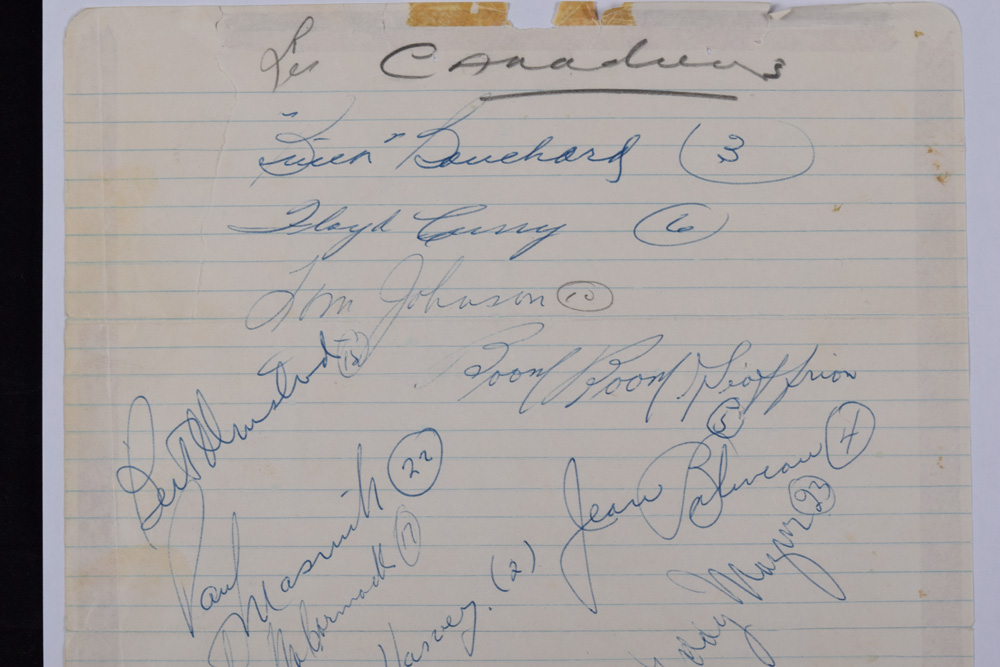 Les Canadiens
"Butch" Bouchard (3)
Floyd Curry (6)
Tom Johnson (10)
Bert Olmstead (15)
Boom Boom Geoffrion (5)
Paul Masnick (22)
Jean Beliveau (4)
MacCormack (17)
Harvey. (2)
Eddy Mazur (23)